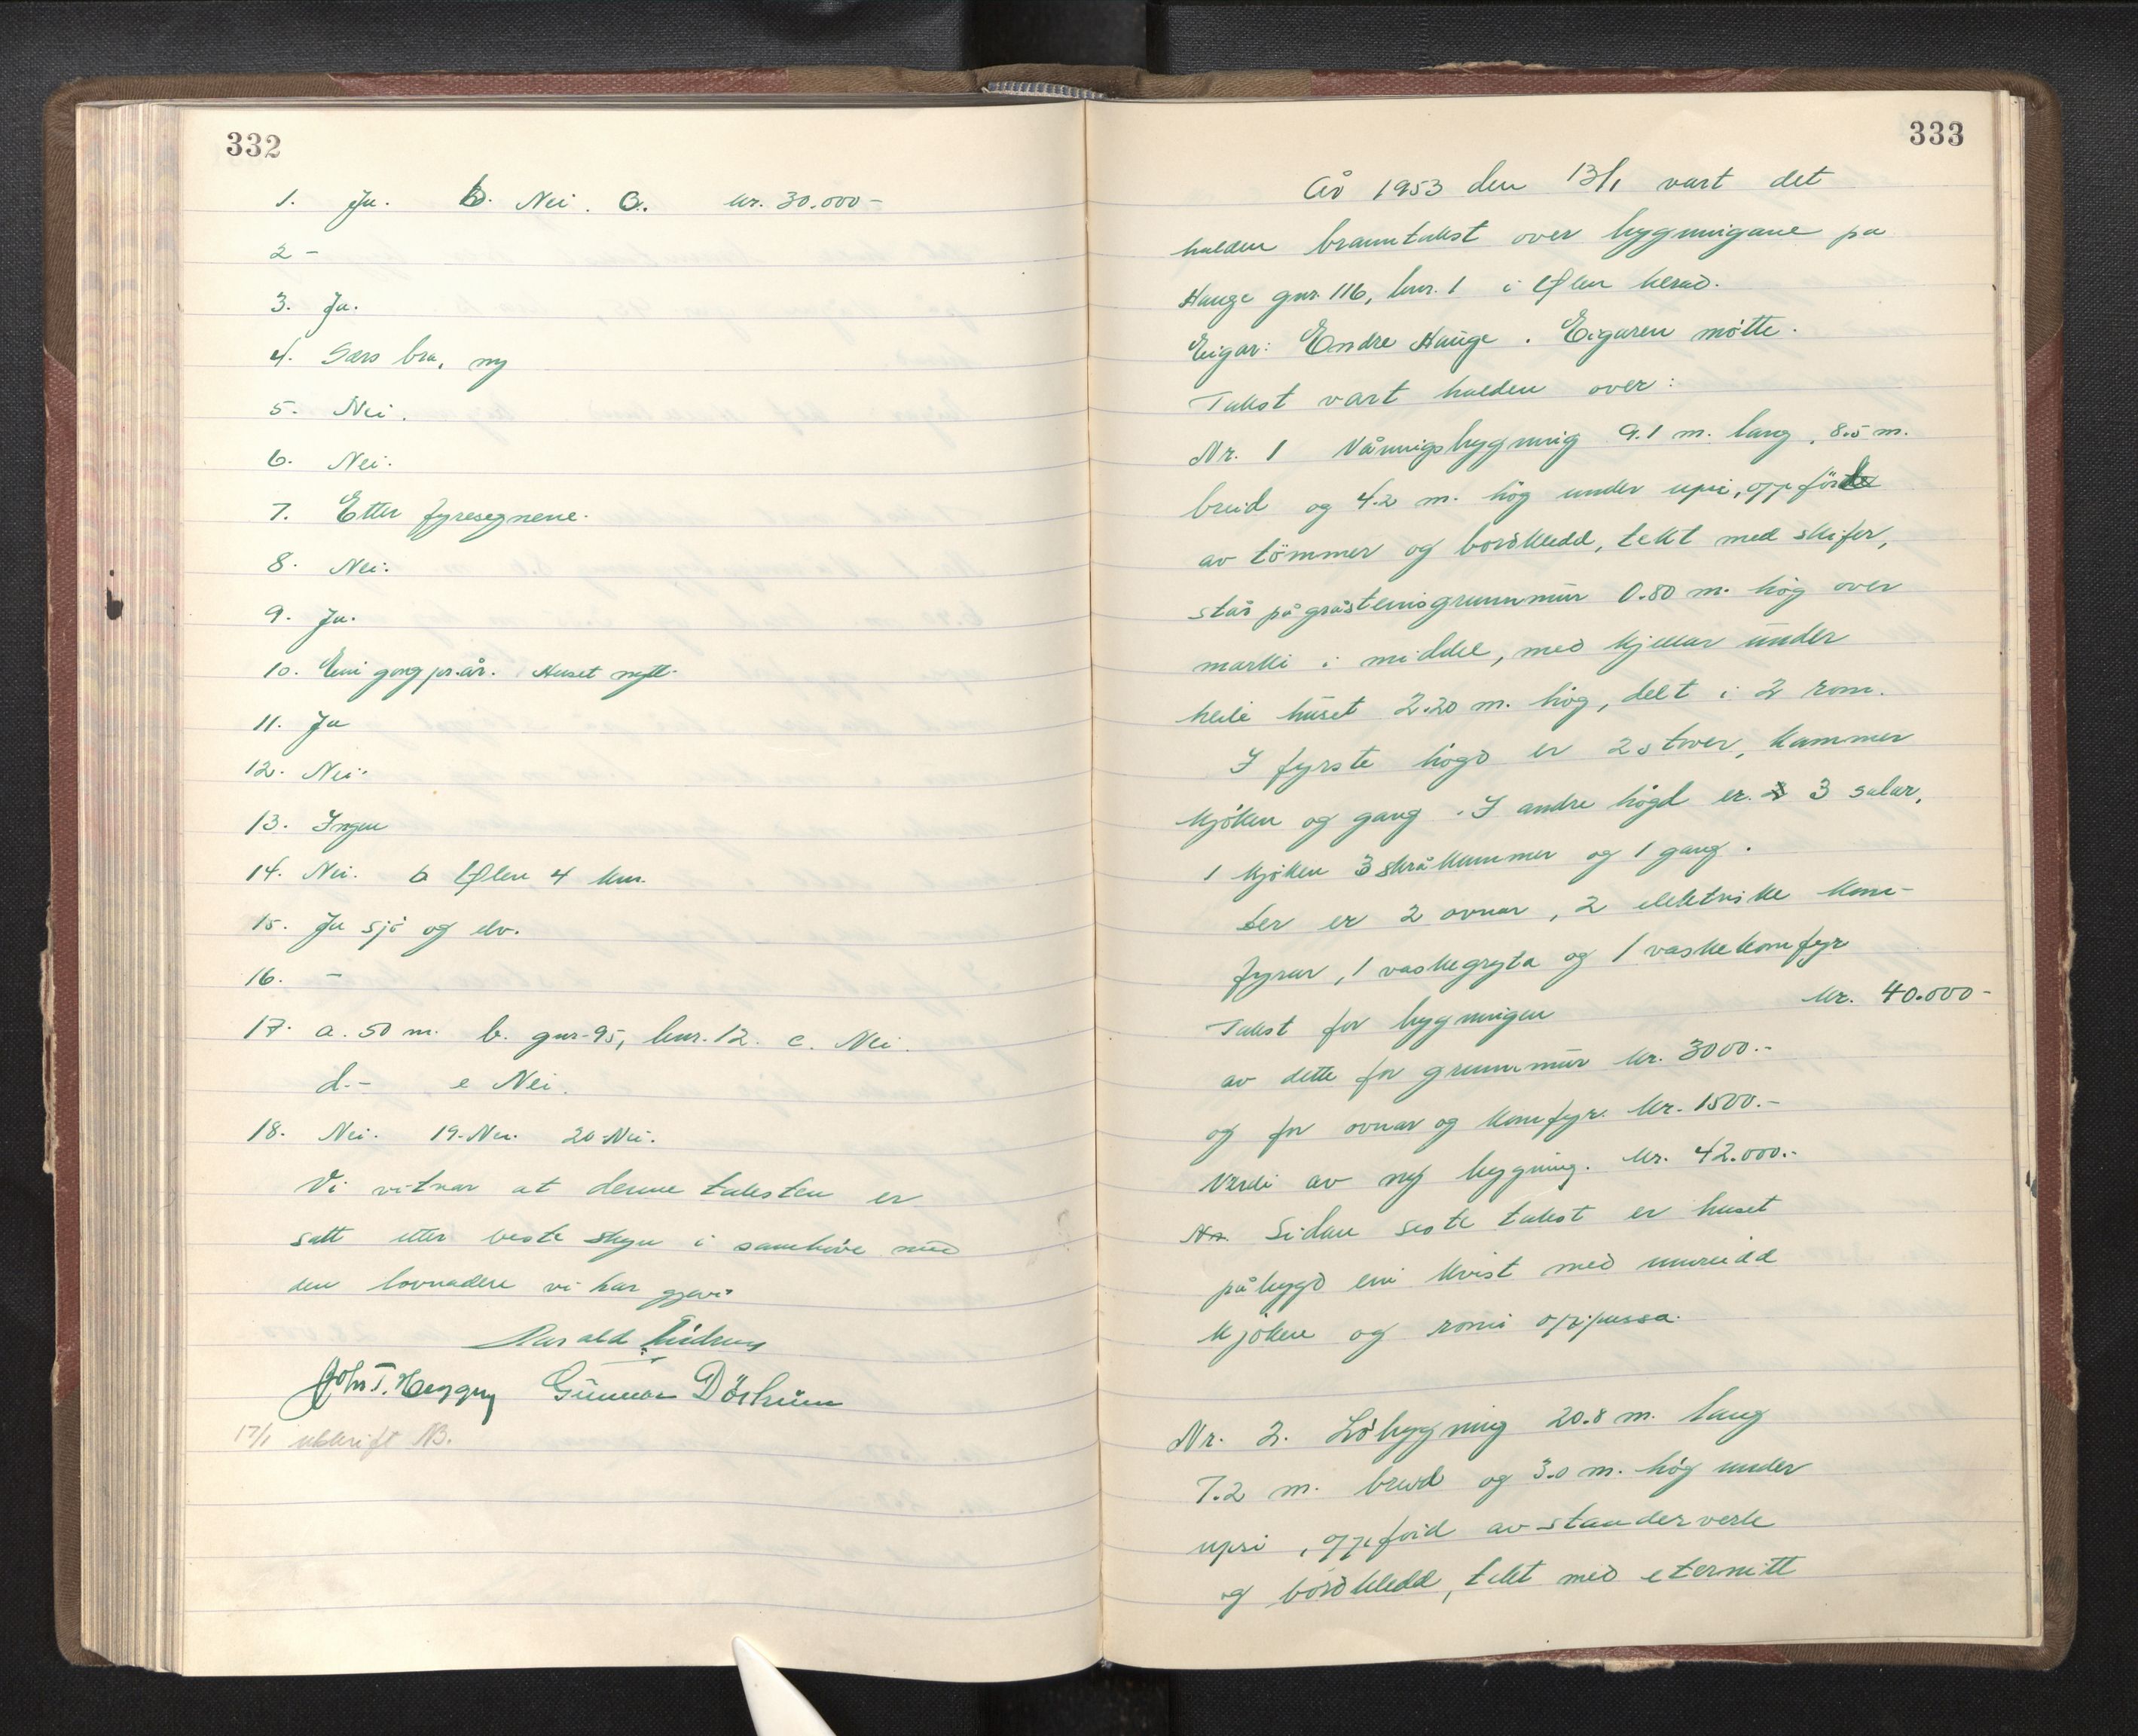 332
1. Ja. b. Nei. c. kr. 30.000-
2 -
3. Ja.
4. Særs bra, ny
5. Nei.
6. Nei.
7. Etter fyresegnene.
8. Nei.
9. Ja.
10. Ein gong pr. år. Huset nytt.
11. Ja
12. Nei.
13. Ingen
14. Nei. b Ølen 4 km.
15. Ja sjö og elv.
16. -
17. a. 50 m. b. gnr. 95, bnr. 12. c. Nei.
d. - e Nei.
18. Nei. 19. Nei. 20. Nei.
Vi vitnar at denne taksten er
sett etter beste skyn i samhöve med
den lovnaden vi har gjevi
John T. Gunnar
17/1 utskrift NB.
333
År 1953 den 13/1 vart det
halden branntakst over bygningane på
Hauge gnr. 116, bnr. 1 i Ølen herad.
Eigar: Endre Hauge. Eigaren mötte.
Takst vart halden over:
Nr. 1 Våningsbygning 9.1 m. lang, 8.5 m.
breid og 4.2 m. hög under upsi, oppförde
av tömmer og bordkledd, tekt med skifer,
står på gråsteinsgrunnmur 0.80 m. hög over
marki i middel, med kjellar under
heile huset 2.20 m. hög, delt i 2 rom.
I fyrste högd er 2 stover, kammer
kjöken og gang. I andre högd er 3 salar,
1 kjöken 3 skråkammer og 1 gang.
Der er 2 ovnar, 2 elektriske kom-
fyrar, 1 vaskegryta og 1 vaskekomfyr
Takst for bygningen kr. 40.000-
av dette for grunnmur kr. 3000.-
og for ovnar og komfyr. kr. 1500.-
Verdi av ny bygning. kr. 42.000.-
Sidan siste takst er huset
påbygd ein kvist med innreidd
kjöken og romi oppussa.
Nr. 2. Löbygning 20.8 m. lang
7.2 m. breid og 3.0 m. hög under
upsi, oppförd av standerverk
og bordkledd, tekt med eternitt